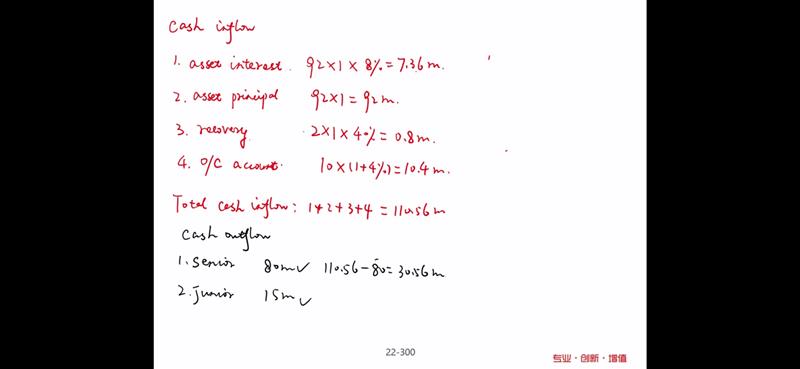 Cash inflow
1. asset interest. 92×1×8%=7.36m.
2. asset principal 92×1=92m.
3. recovery. 2×1×40%=0.8m.
4. O/C account. 10×(1+4%)=10.4m.
Total cash inflow: 1+2+3+4=110.56m
Cash outflow
1. senior 80m✓ 110.56-80=30.56m
2. junior 15m✓
22-300
专业·创新·增值